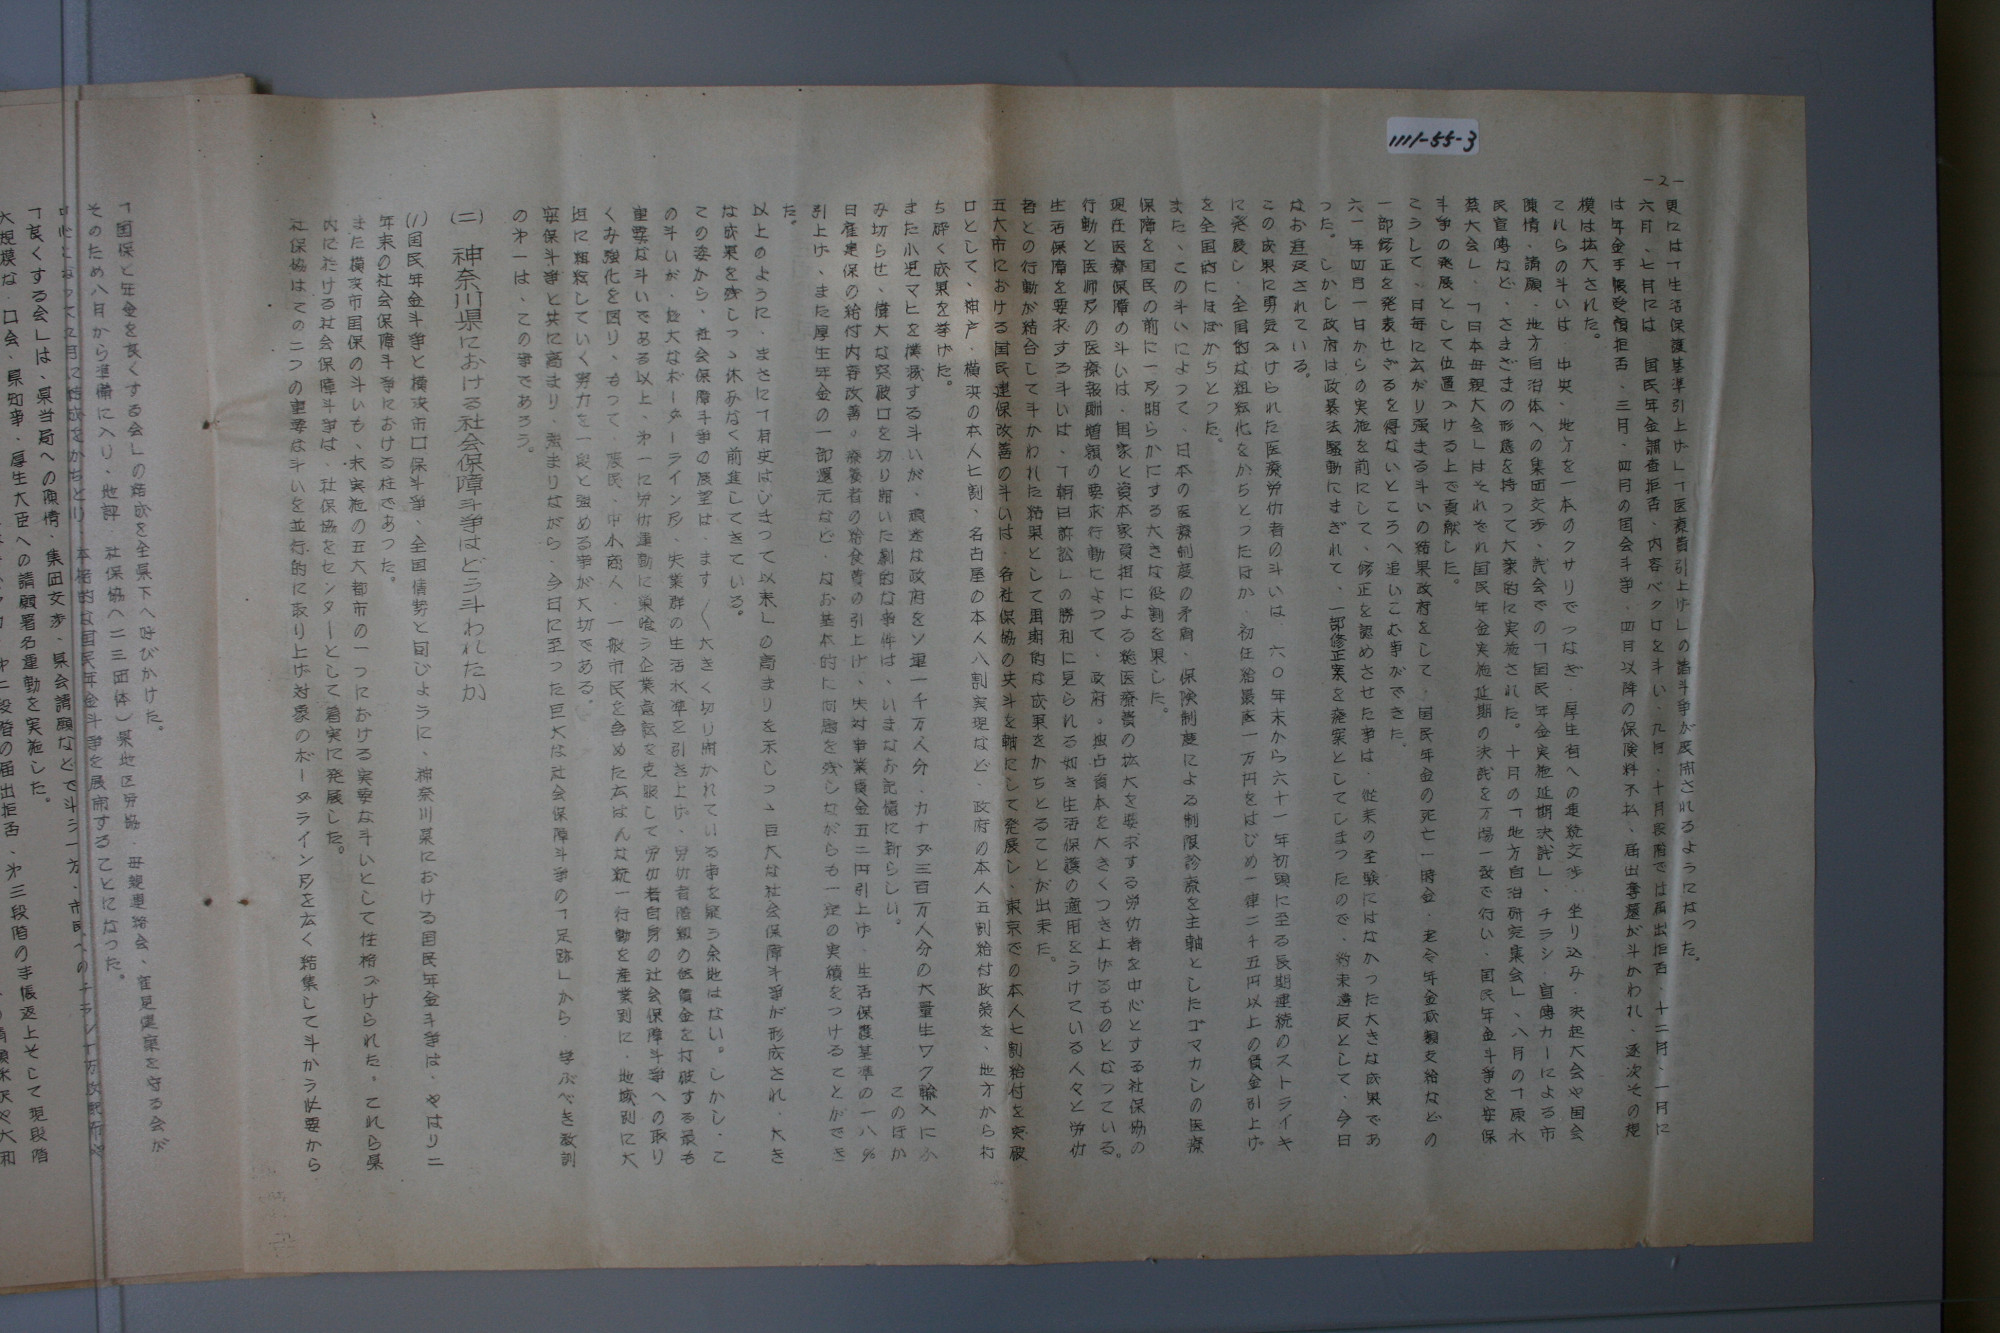 1111-55-3
-2-
更には「生活保護基準引上げ」「医療費引上げ」の諸斗争が展開されるようになった。
六月、七月には 国民年金調査拒否、内容ベクロを斗い、九月・十月段階では届出拒否、十二月、一月に
は年金手帳受領拒否、三月、四月の国会斗争、四月以降の保険料不払、届出奪還が斗かわれ、逐次その規
模は拡大された。
これらの斗いは、中央、地方を一本のクサリでつなぎ、厚生省への連続交渉、坐り込み、決起大会や国会
陳情、請願、地方自治体への集団交渉、議会での「国民年金実施延期決議」、チラシ、宣傳カーによる市
民宣傳など、さまざまの形態を持って大衆的に実施された。十月の「地方自治研究集会」、八月の「原水
禁大会」、「日本母親大会」はそれぞれ国民年金実施延期の決議を万場一致で行い、国民年金斗争を安保
斗争の発展として位置づける上で貢献した。
こうして、日毎に広がり強まる斗いの結果政府をして、国民年金の死亡一時金、老令年金減額支給などの
一部修正を発表せざるを得ないところへ追いこむ事ができた。
六一年四月一日からの実施を前にして、修正を認めさせた事は、従来の経験にはなかった大きな成果であ
った。しかし政府は政暴法騒動にまぎれて、一部修正案を廃案としてしまったので、約束違反として、今日
なお追及されている。
この成果に勇気づけられた医療労仂者の斗いは、六〇年末から六十一年初頭に至る長期連続のストライキ
に発展し、全国的な組織化をかちとったほか、初任給最底一万円をはじめ一律二千五円以上の賃金引上げ
を全国的にほぼかちとった。
また、この斗いによって、日本の医療制度の矛盾、保険制度による制限診療を主軸としたゴマカシの医療
保障を国民の前に一歩明らかにする大きな役割を果した。
現在医療保障の斗いは、国家と資本家負担による総医療費の拡大を要求する労仂者を中心とする社保協の
行動と医師多の医療報酬増額の要求行動によって、政府。独占資本を大きくつき上げるものとなっている。
生活保障を要求する斗いは、「朝日訴訟」の勝利に見られる如き生活保護の適用をうけている人々と労仂
者との行動が結合して斗かわれた結果として画期的な成果をかちとることが出来た。
五大市における国民健保改善の斗いは、各社保協の共斗を軸にして発展し、東京での本人七割給付を突破
口として、神戸・横浜の本人七割、名古屋の本人八割実現など、政府の本人五割給付政策を、地方から打
ち砕く成果を挙げた。
また小児マヒを撲滅する斗いが、頑迷な政府をソ連一千万人分、カナダ三百万人分の大量生ワク輸入にふ
み切らせ、偉大な突破口を切り開いた劇的な事件は、いまなお記憶に新らしい。 このほか
日雇健保の給付内容改善、療養者の給食費の引上げ、失対事業賃金五二円引上げ、生活保護基準の一八%
引上げ、また厚生年金の一部還元など、なお基本的に問題を残しながらも一定の実績をつけることができ
た。
以上のように、まさに「有史はじまって以来」の高まりを示しつゝ巨大な社会保障斗争が形成され、大き
な成果を残しつゝ休みなく前進してきている。
この姿から、社会保障斗争の展望は、ます〱大きく切り開かれている事を疑う余地はない。しかし、こ
の斗いが、厖大なボーダーライン层、失業群の生活水準を引き上げ、労仂者階級の低賃金を打破する最も
重要な斗いである以上、第一に労仂運動に巣喰う企業意識を克服して労仂者自身の社会保障斗争への取り
くみ強化を図り、もって、農民、中小商人、一般市民を含めた広はんな統一行動を産業別に、地域別に大
胆に組織していく努力を一段と強める事が大切である。
安保斗争と共に高まり、強まりながら、今日に至った巨大な社会保障斗争の「足跡」から、学ぶべき教訓
の第一は、この事であろう。
(二) 神奈川県における社会保障斗争はどう斗われたか
(1) 国民年金斗争と横浜市国保斗争、全国情勢と同じように、神奈川県における国民年金斗争は、やはり二
年来の社会保障斗争における柱であった。
また横浜市国保の斗いも、未実施の五大都市の一つにおける実要な斗いとして性格づけられた。これら県
内における社会保障斗争は、社保協をセンターとして着実に発展した。
社保協はこの二つの重要な斗いを並行的に取り上げ対象のボーダーライン层を広く結集して斗かう必要から
「国保と年金を良くする会」の結成を全県下へ呼びかけた。
そのため八月から準備に入り、地評、社保協へ二三団体)県地区労協、母親連絡会、童見健薬を守る会が
中心となって九月に結成をかちとり、本格的な国民年金斗争を展開することになった。
「良くする会」は、県当局への陳情、集団交渉、県会請願などで斗う一方、市民へのチラシ
大規模な、口会、県知事、厚生大臣への請願署名運動を実施した。
第二段階の届出拒否、第三段階の手帳返上そして現段階